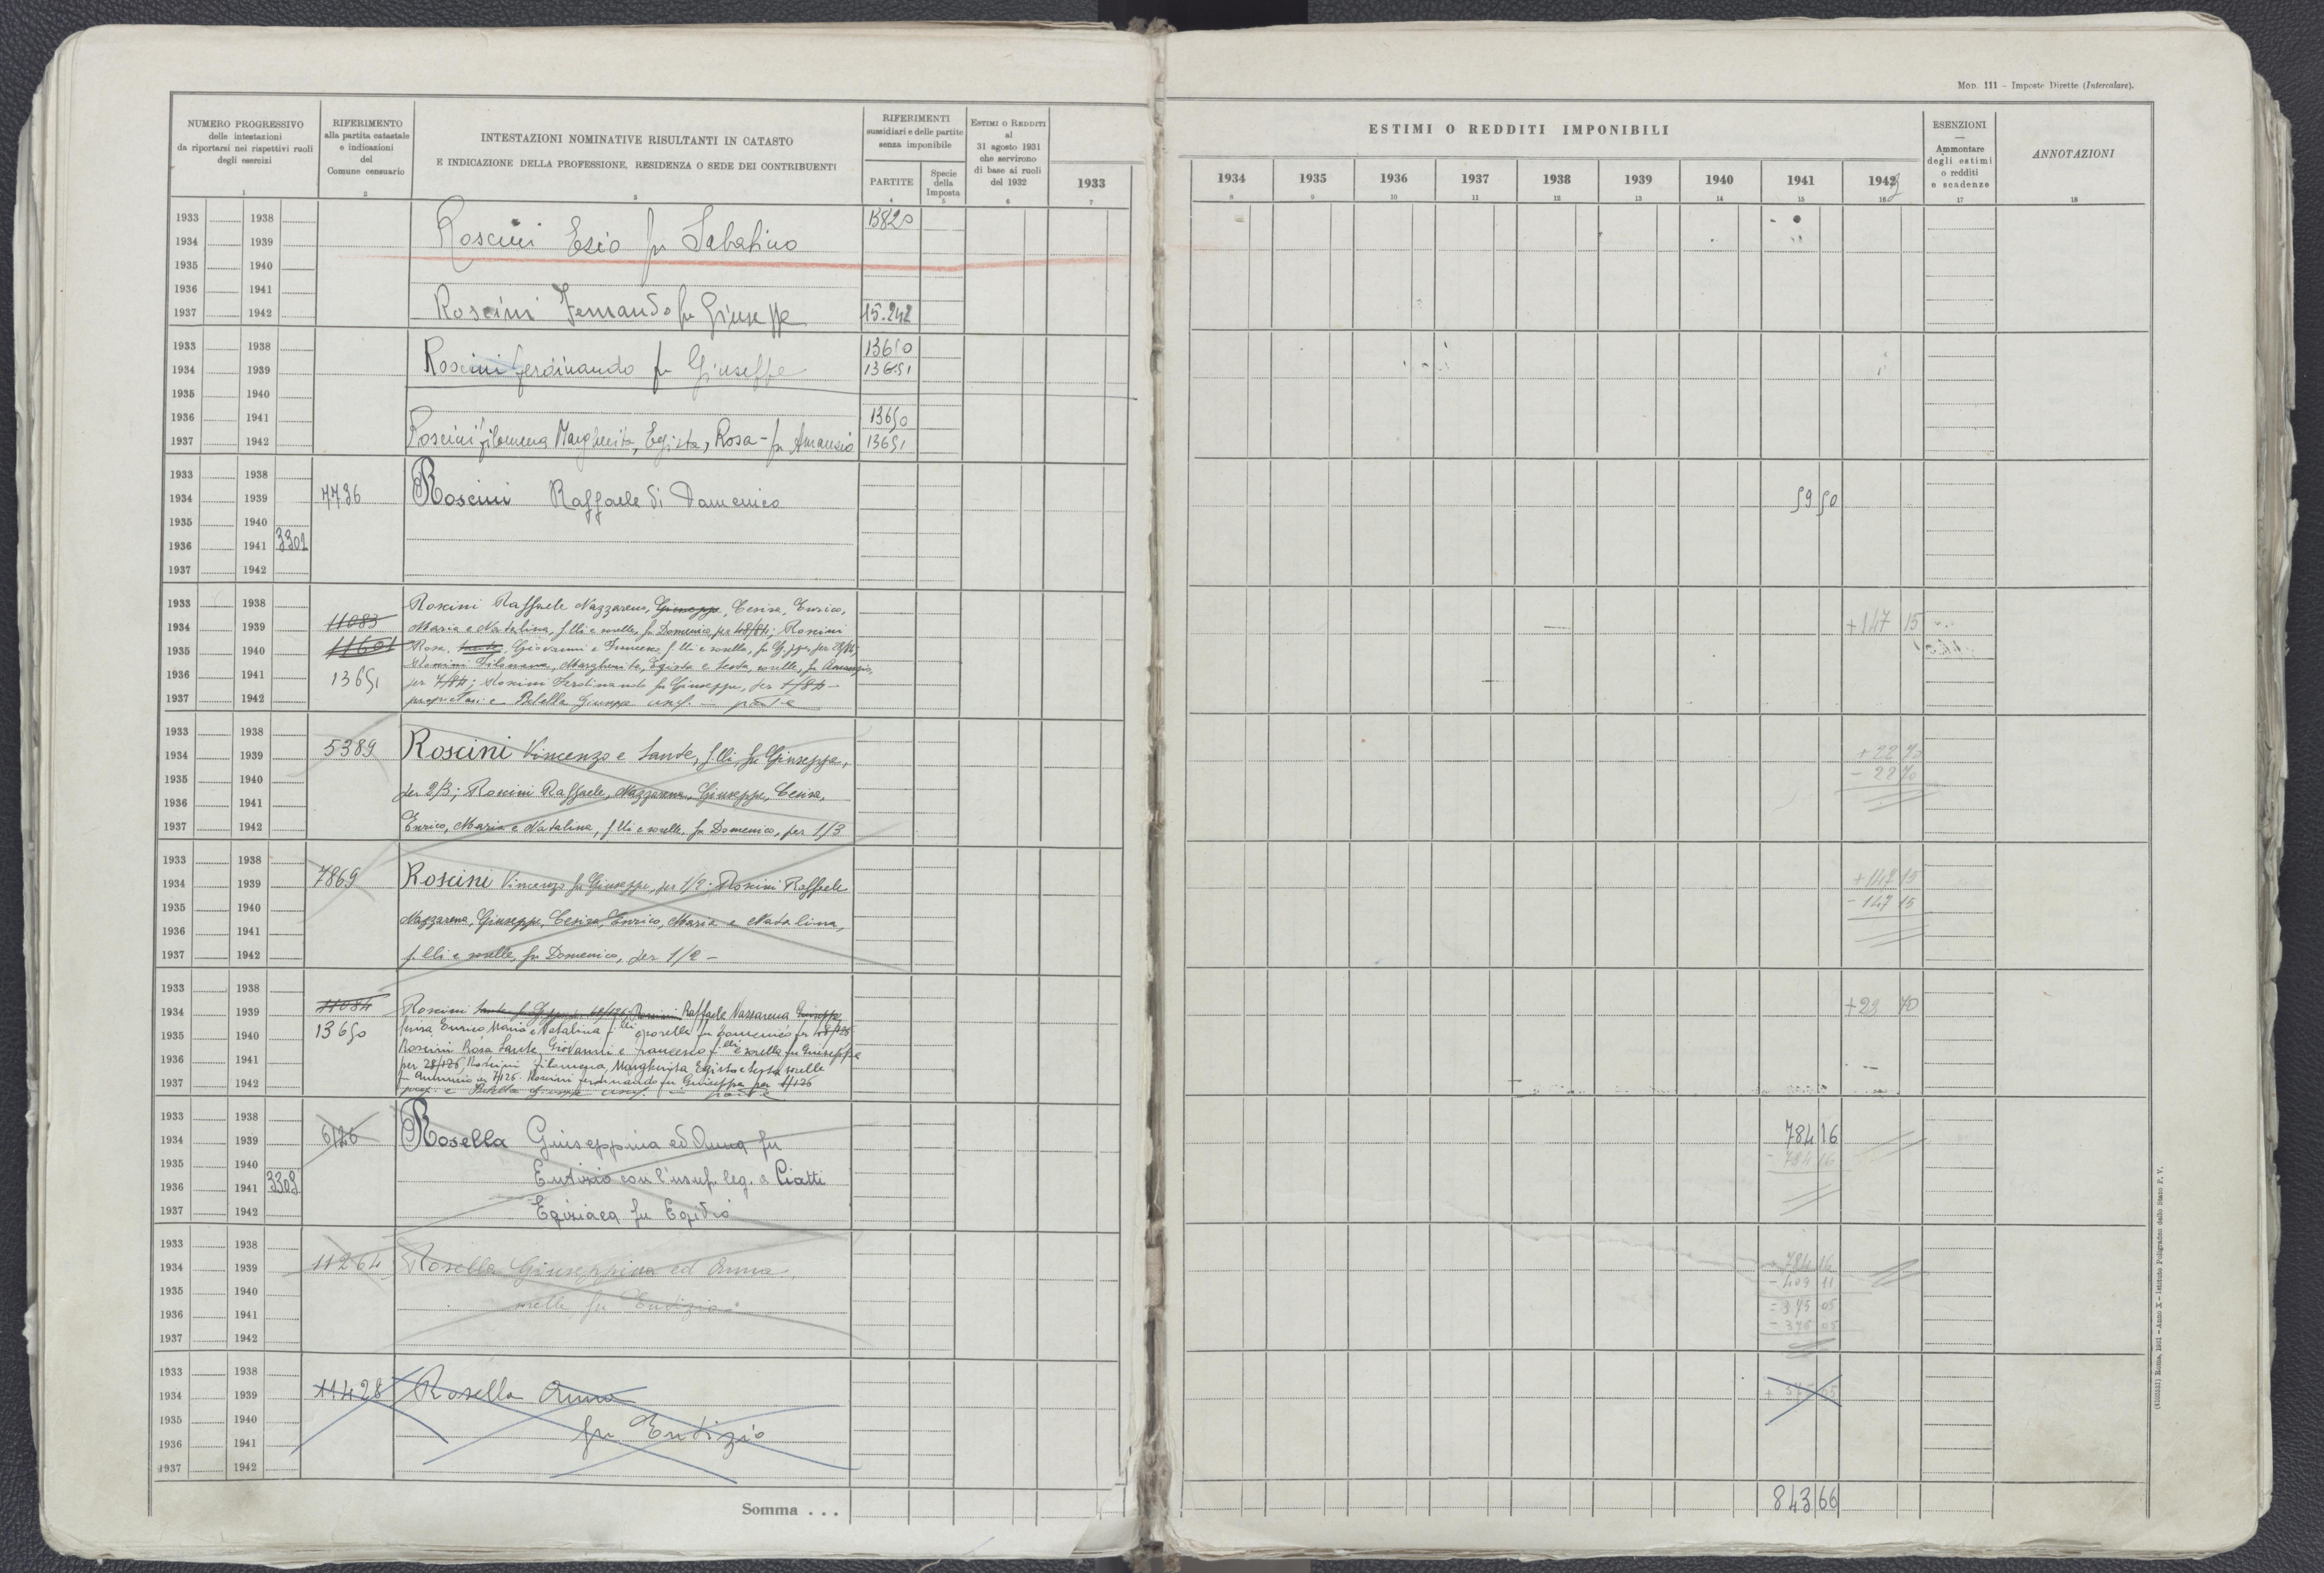 Mod. 111 – Imposte Dirette (Intercalare).
NUMERO PROGRESSIVO
delle intestazioni
da riportarsi nei rispettivi ruoli
degli esercizi
1
RIFERIMENTO
alla partita catastale
e indicazioni
del
Comune censuario
2
INTESTAZIONI NOMINATIVE RISULTANTI IN CATASTO
E INDICAZIONE DELLA PROFESSIONE, RESIDENZA O SEDE DEI CONTRIBUENTI
3
RIFERIMENTI
sussidiari e delle partite
senza imponibile
PARTITE
4
Specie
della
Imposta
5
ESTIMI O REDDITI
al
31 agosto 1931
che servirono
di base ai ruoli
del 1932
6
1933
7
ESTIMI O REDDITI IMPONIBILI
1934 1935 1936 1937 1938 1939 1940 1941 1942
8 9 10 11 12 13 14 15 16
ESENZIONI
—
Ammontare
degli estimi
o redditi
e scadenze
17
ANNOTAZIONI
18
1933 1938 13820
1934 1939 Roscini Esio fu Sabatino
1935 1940
1936 1941
1937 1942 Roscini Fernando fu Giuseppe 15.242
1933 1938 13650
1934 1939 Roscini Ferdinando fu Giuseppe 13651
1935 1940
1936 1941 13650
1937 1942 Roscini Filomena Margherita, Egista, Rosa - fu Amansio 13651
1933 1938
1934 1939 7736 Roscini Raffaele di Domenico 59 50
1935 1940
1936 1941 3302
1937 1942
1933 1938 Roscini Raffaele Nazzarena, Giuseppe, Cesira, Enrico,
1934 1939 11083 Maria e Natalina, f.lli e sorelle, fu Domenico, per 48/84; Roscini +147 15
1935 1940 11601 Rosa, Sante, Giovanni e Francesco f.lli e sorella, fu
Roscini Filomena, Margherita, Egista e sorelle, fu
1936 1941 13651 per 7/84; Roscini Ferdinando fu Giuseppe, per 1/84 -
1937 1942 proprietari e Betella Giuseppe usuf. -
1933 1938
1934 1939 5389 Roscini Vincenzo e Sante, f.lli, fu Giuseppe, + 22 70
1935 1940 - 22 70
1936 1941 per 2/3; Roscini Raffaele, Nazzarena, Giuseppe, Cesira,
1937 1942 Enrico, Maria e Natalina, f.lli e sorelle, fu Domenico, per 1/3
1933 1938
1934 1939 7869 Roscini Vincenzo fu Giuseppe, per 1/2; Roscini Raffaele + 147 15
1935 1940 - 147 15
1936 1941 Nazzarena, Giuseppe, Cesira, Enrico, Maria e Natalina,
1937 1942 f.lli e sorelle, fu Domenico, per 1/2 -
1933 1938
1934 1939 11084 Roscini Sante fu Roscini Raffaele Nazzarena Giuseppe +23 70
1935 1940 13650 Enrico Maria e Natalina f.lli e sorelle fu Domenico per 48/126
Roscini Rosa Sante, Giovanni e Francesco f.lli e sorella fu Giuseppe
1936 1941 per 28/126, Roscini Filomena, Margherita, Egista e sorelle
1937 1942 per 7/126. Roscini Ferdinando fu Giuseppe per 1/126
1933 1938
1934 1939 6126 Rosella Giuseppina ed Anna fu 784 16
1935 1940 - 784 16
1936 1941 3303 Eutizio con l'usuf. leg. a Ciatti
1937 1942 Egiziaca fu Egidio
1933 1938
1934 1939 11264 Rosella Giuseppina ed Anna, + 784 16
1935 1940 - 409 11
1936 1941 sorelle fu Eutizio = 375 05
1937 1942 - 375 05
1933 1938
1934 1939 11428 Rosella Anna + 375 05
1935 1940
1936 1941 fu Eutizio
1937 1942
Somma . . . 843 66
(4100331) Roma, 1931 – Anno X – Istituto Poligrafico dello Stato P. V.